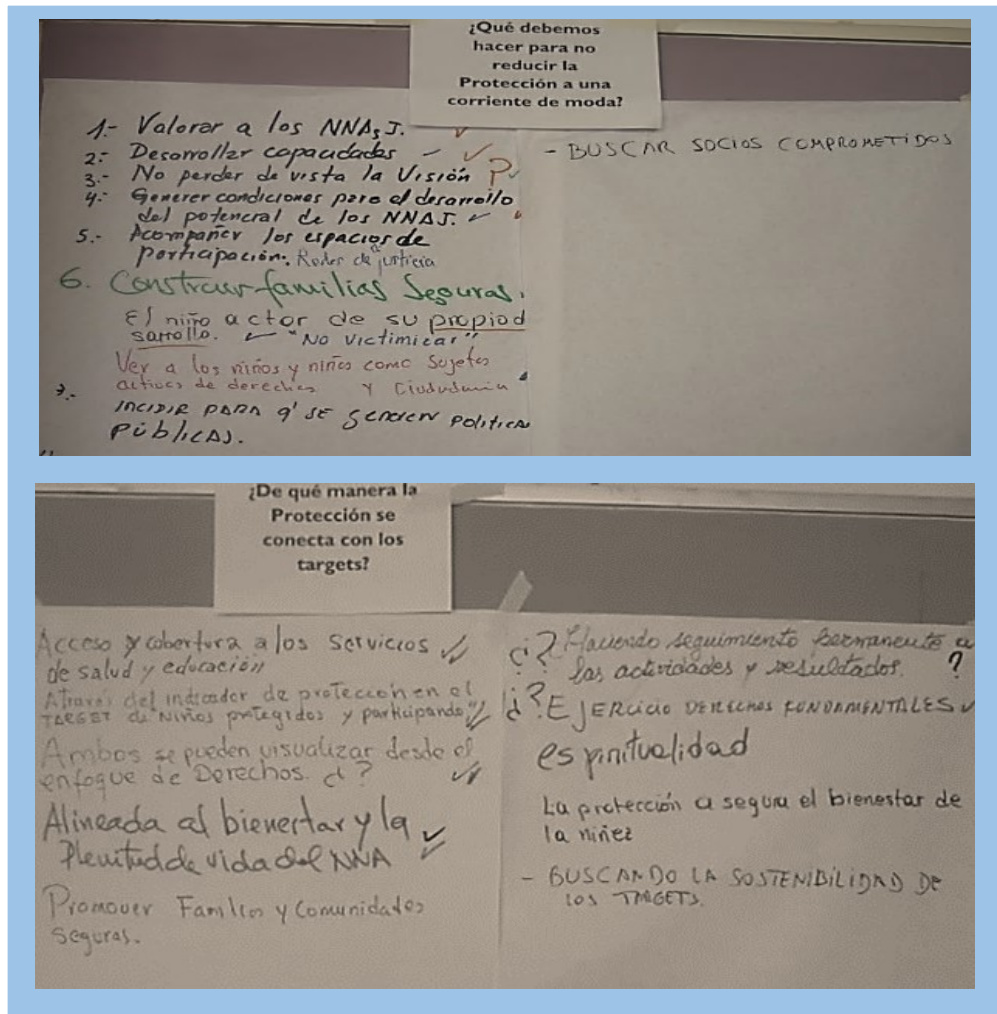 ¿Qué debemos
hacer para no
reducir la
Protección a una
corriente de moda?
1.- Valorar a los NNAsJ.
2.- Desarrollar capacidades -
3.- No perder de vista la Visión ?
4.- Generer condiciones para el desarrollo
del potencial de los NNAJ.
5.- Acompañar los espacios de
participación. Redes de justicia
6. Construir familias Seguras.
El niño actor de su propiod
sarrollo. "No victimizar"
Ver a los niños y niñas como sujetos
activos de derechos y Ciudadania
7.-
INCIDIR PARA q' SE GENEREN POLITICA
PÚBLICAS.
- BUSCAR SOCIOS COMPROMETIDOS
¿De qué manera la
Protección se
conecta con los
targets?
Acceso y cobertura a los servicios
de salud y educación
Atraves del indicador de protección en el
TARGET de "Niños protegidos y participando"
Ambos se pueden visualizar desde el
enfoque de Derechos. ¿?
Alineada al bienestar y la
Plenitud de vida del NNA
Promover Familias y Comunidades
seguras.
¿? Haciendo seguimiento permanente a
las actividades y resultados. ?
¿? EJERCICIO DERECHOS FUNDAMENTALES
espiritualidad
La protección asegura el bienestar de
la niñez
- BUSCANDO LA SOSTENIBILIDAD DE
LOS TARGETS.